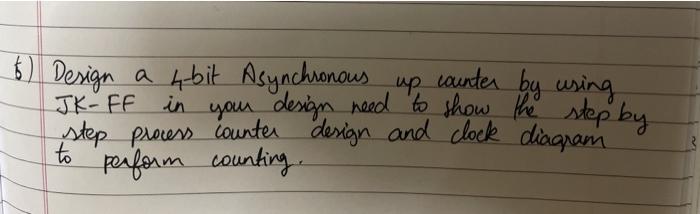 5) Design a 4-bit Asynchronous up counter by using
JK-FF in your design need to show the step by
step process counter design and clock diagram
to perform counting.